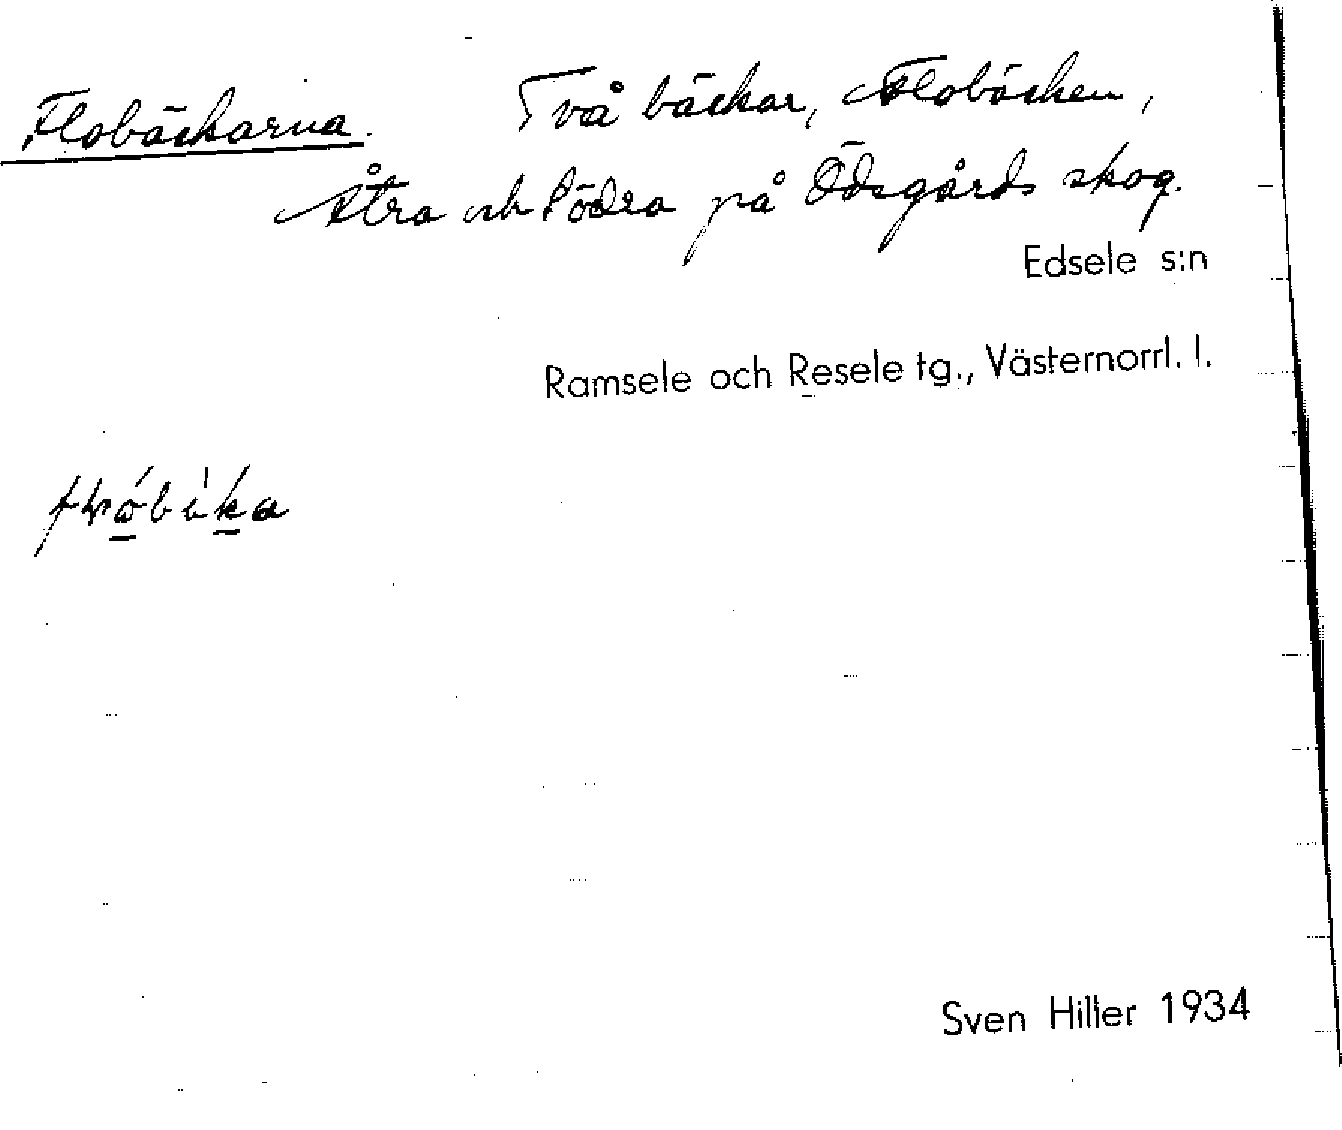 Flobäckarna. Två bäckar, Flobäcken,
Åtra och Södra på Ödsgårds skog.
Edsele s:n
Ramsele och Resele tg., Västernorrl. l.
Sven Hiller 1934